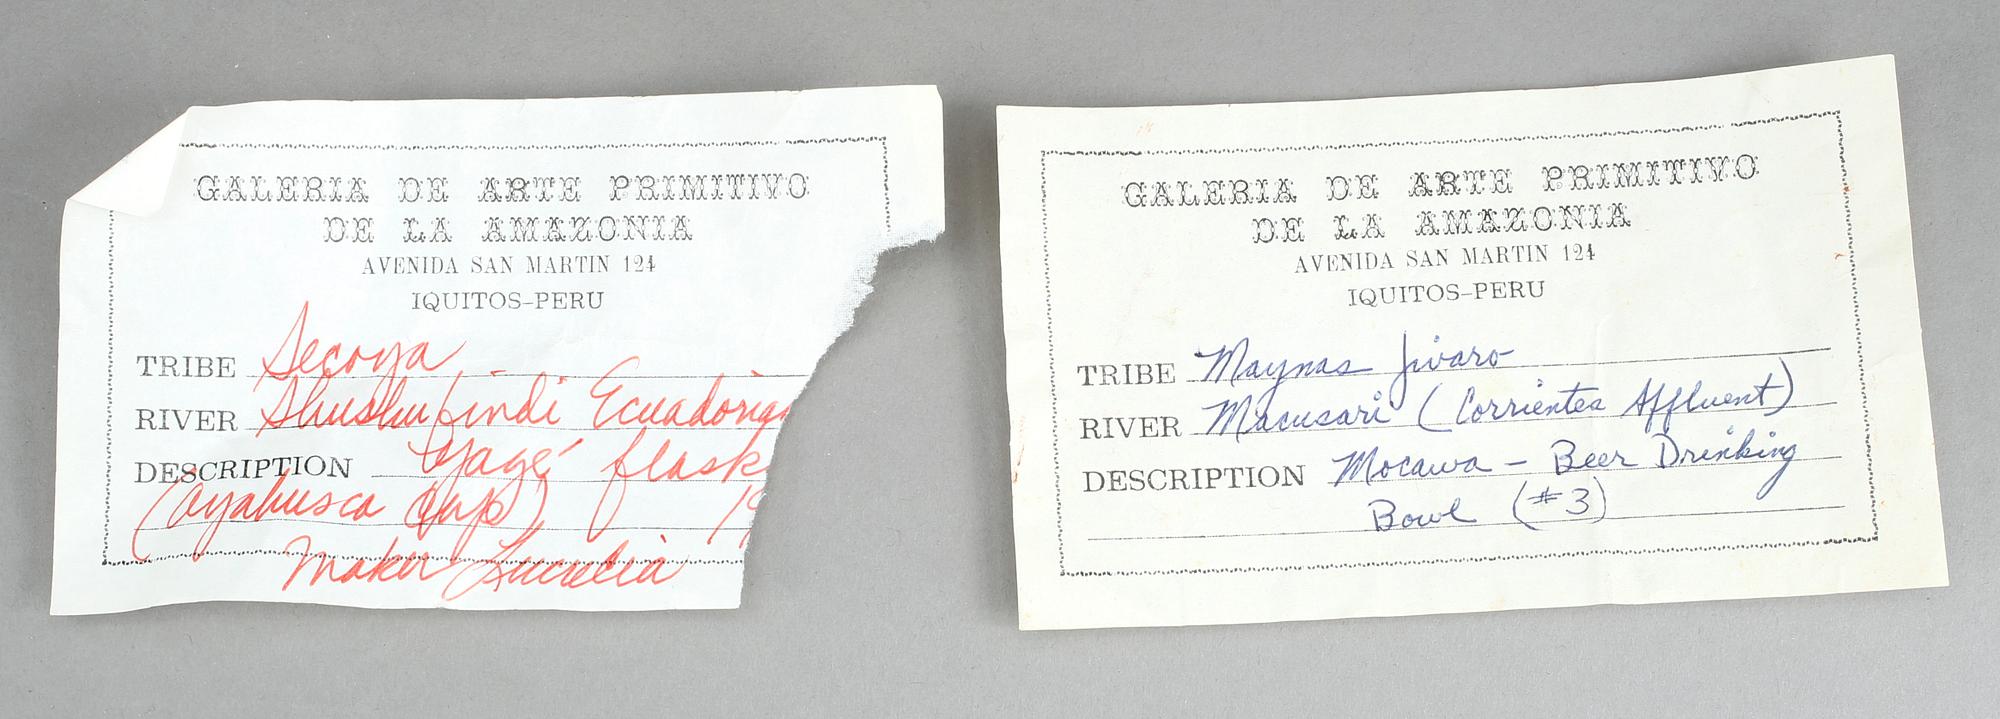 GALERIA DE ARTE PRIMITIVO
DE LA AMAZONIA
AVENIDA SAN MARTIN 124
IQUITOS-PERU
TRIBE Secoya
RIVER Shushufindi Ecuadorian
DESCRIPTION Yagé flask
(ayahusca cup) 19
Maker Lucalia
GALERIA DE ARTE PRIMITIVO
DE LA AMAZONIA
AVENIDA SAN MARTIN 124
IQUITOS-PERU
TRIBE Maynas Jivaro
RIVER Macusari (Corrientes Affluent)
DESCRIPTION Mocawa - Beer Drinking
Bowl (#3)